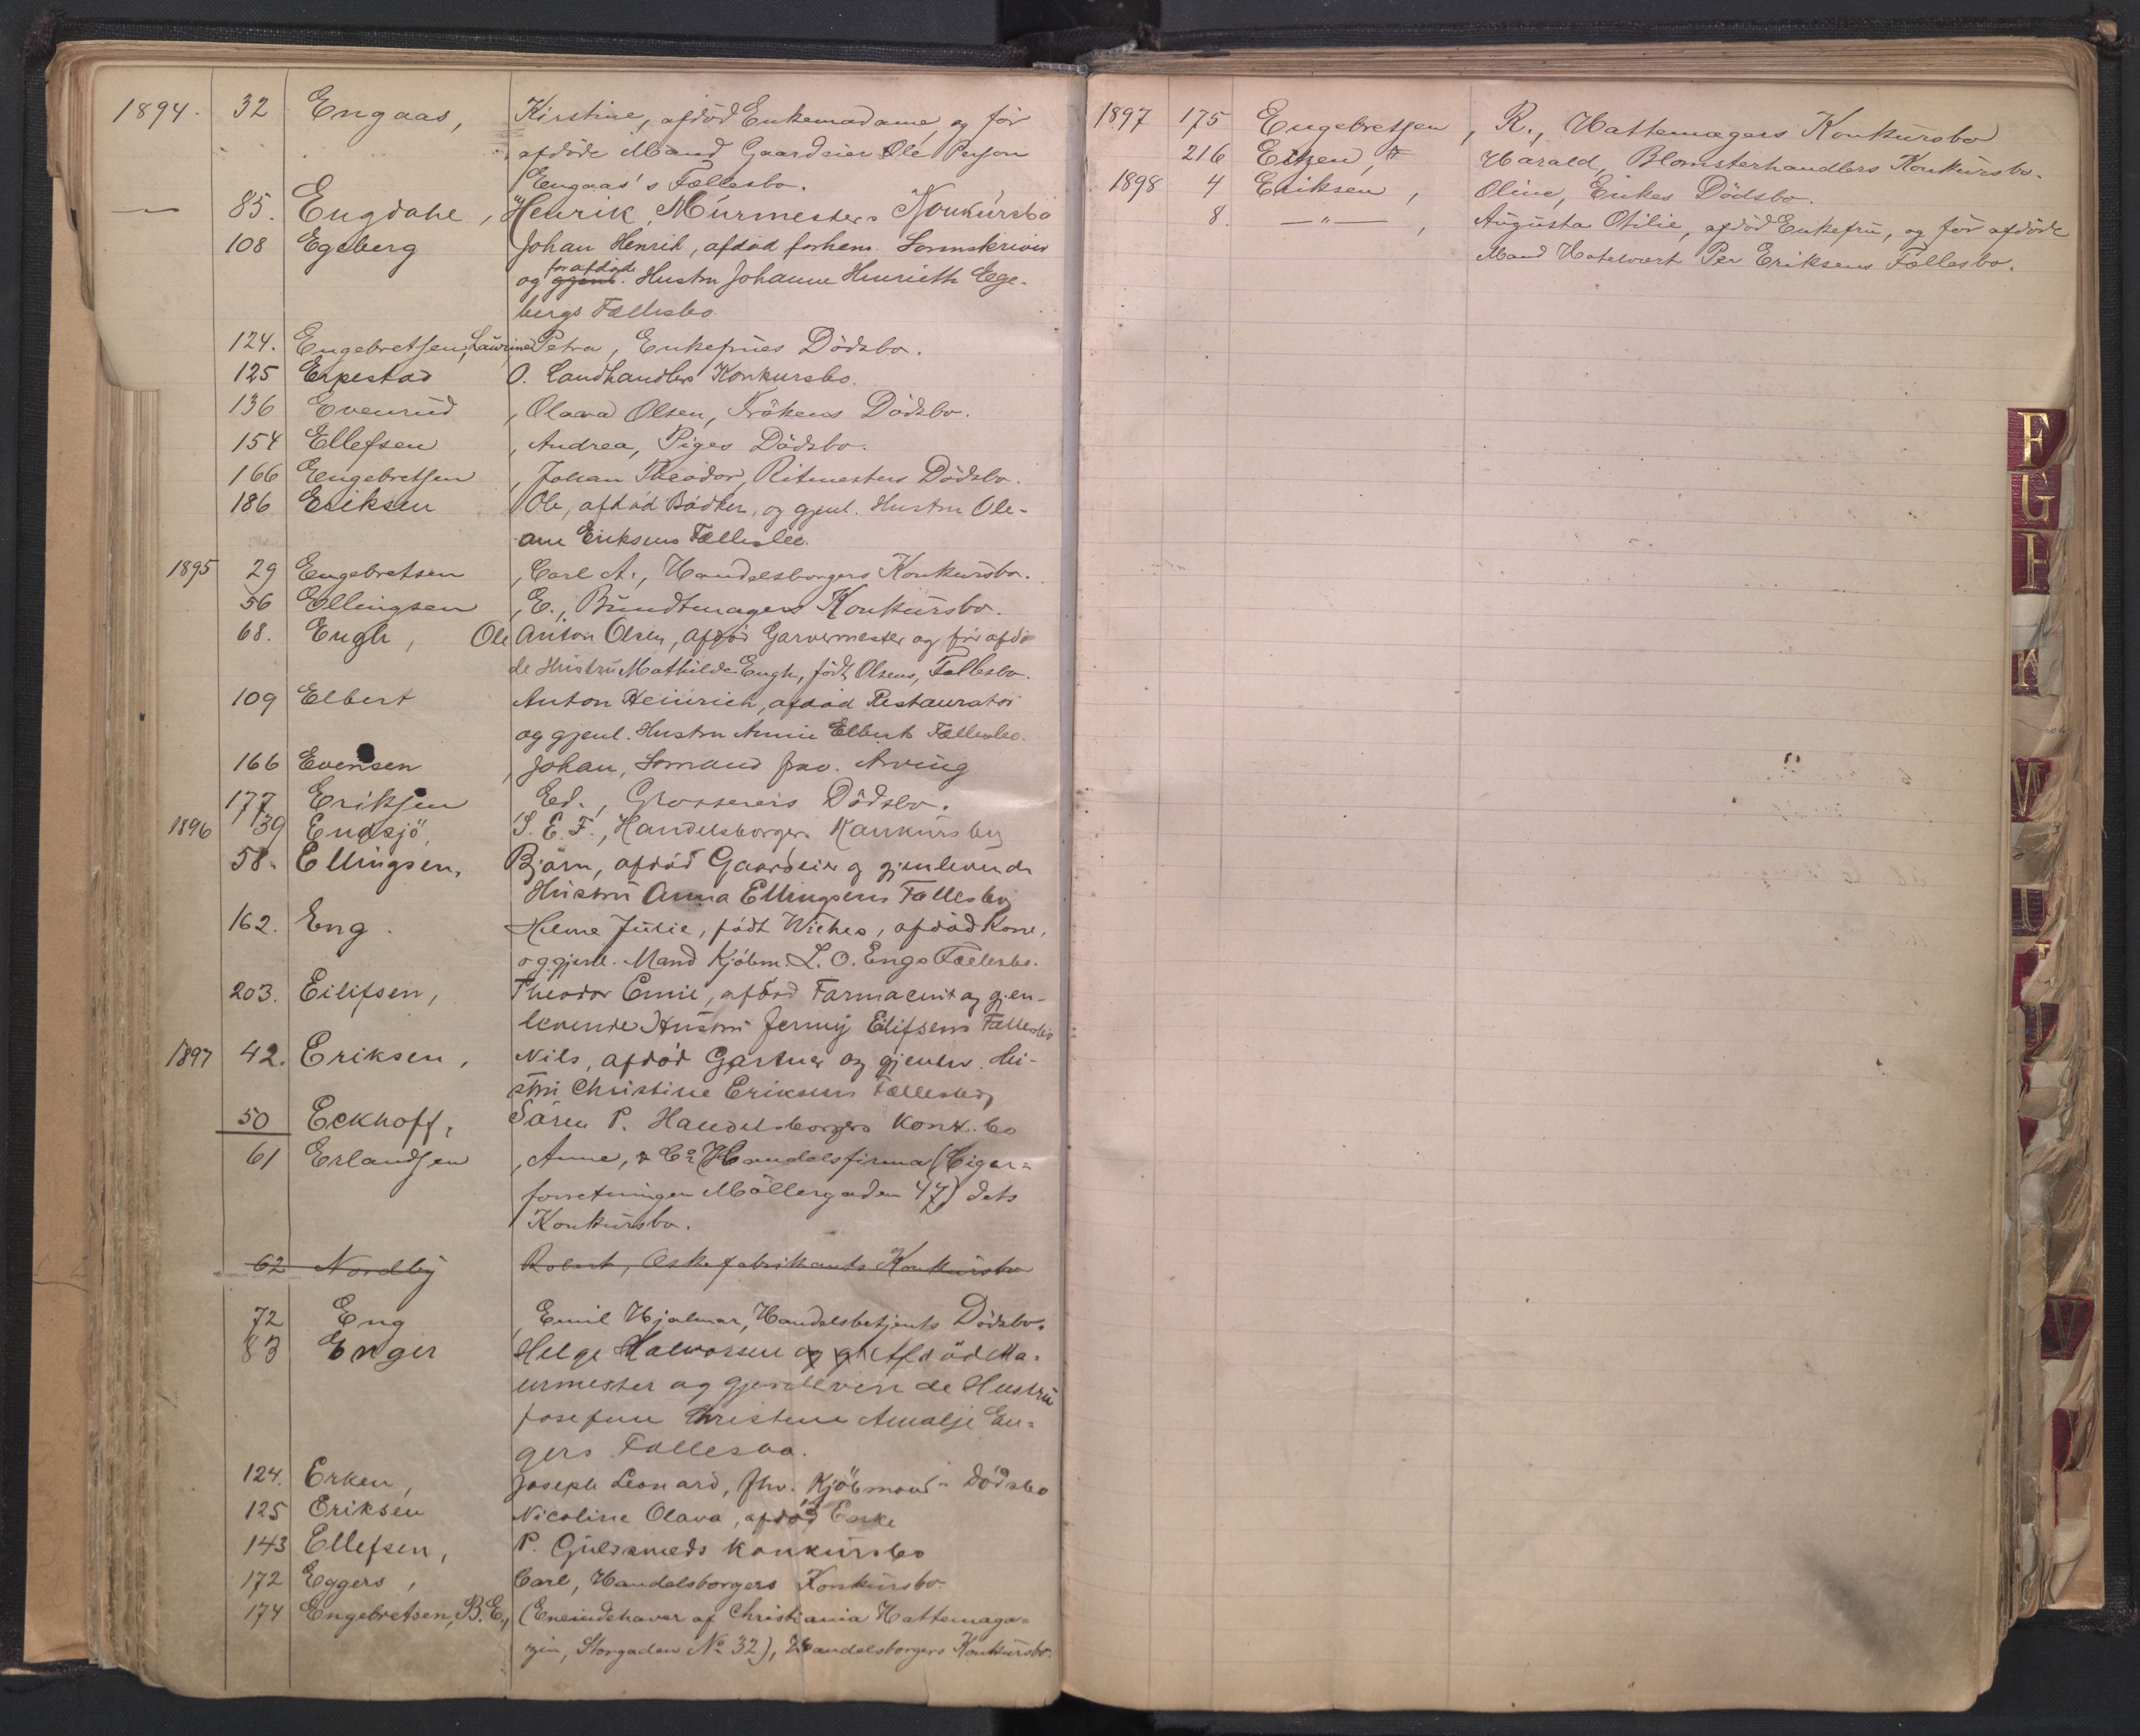 1894. 32 Engaas, Kirstine, afdöd Enkemadame, og før
afdöde Mand Gaardeier Ole Persen
Engaas's Fællesbo.
— 85. Engdahl, Henrik, Murmesters Konkursbo
108 Egeberg Johan Henrik, afdöd forhenv.
for afdöde
og gjenl. Hustru Johanne Henriette Ege-
bergs Fællesbo
124. Engebretsen, Laurine Petra, Enkefrues Dödsbo.
125 Erpestad O. Landhandlers Konkursbo.
136 Evenrud, Olava Olsen, Frökens Dödsbo.
154 Ellefsen, Andrea, Piges Dödsbo.
166 Engebretsen, Johan Theodor, Ritmesters Dödsbo.
186 Eriksen Ole, afdöd Bödker, og gjenl. Hustru Ole-
ane Eriksens Fællesbo.
1895 29 Engebretsen, Carl A., Handelsborgers Konkursbo.
56 Ellingsen, E., Bundtmagers Konkursbo.
68. Engh, Ole Anton Olsen, afdöd Garvermester og för afdö
de Hustru Mathilde Engh, födt Olsens, Fællesbo.
109 Elbert Anton Heinrich, afdöd Restauratör
og gjenl. Hustru Annie Elberts Fællesbo.
166 Evensen, Johan, Sömand
177 Eriksen Ed., Grosserers Dödsbo.
1896 39 Endsjö, S. E. F., Handelsborgers Konkursbo
58. Ellingsen, Björn, afdöd Gaardeier og gjenlevende
Hustru Anna Ellingsens Fællesbo
162. Eng. Helene Julie, födt Wiches, afdöd Kone,
og gjenl. Mand Kjöbm. L. O. Engs Fællesbo.
203. Eilifsen, Theodor Emil, afdöd Farmaceut og gjen-
levende Hustru Jenny Eilifsens Fællesbo
1897 42. Eriksen, Nils, afdöd Gartner og gjenlev. Hu-
stru Christine Eriksens Fællesbo
50 Eckhoff, Sören P. Handelsborgers Konk.bo
61 Erlandsen, Anne, & Co Handelsfirma (Cigar=
forretningen Möllergaden 47) dets
Konkursbo.
62 Nordby Robert, Æskefabrikants Konkursbo
72 Eng, Emil Hjalmar, Handelsbetjents Dödsbo.
83 Enger Helge Halvorsen og gj Afdöd Mu=
urmester og gjenlevende Hustru
Josefine Christine Amalje En=
gers Fællesbo.
124. Erken, Joseph Leonard, fhv. Kjöbmands Dödsbo
125 Eriksen Nicoline Olava, afdöd Enke
143 Ellefsen, P. Guldsmeds Konkursbo
172 Eggers, Carl, Handelsborgers Konkursbo.
174 Engebretsen, B. E., (Eneindehaver af Christiania Hattemaga=
zin, Storgaden No 32), Handelsborgers Konkursbo.
1897 175 Engebretsen, R., Hattemagers Konkursbo
216 Eitzen, Harald, Blomsterhandlers Konkursbo.
1898 4 Eriksen, Oline, Enkes Dödsbo.
8. —"—, Augusta Otilie, afdöd Enkefru, og för afdöde
Mand Hotelvært Per Eriksens Fællesbo.
F
G
I
K
M
U
V